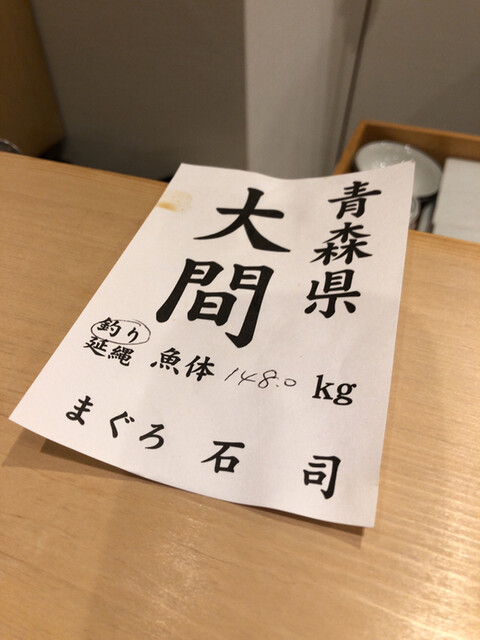 青森県
大間
釣り
延縄 魚体 148.0 kg
まぐろ 石司